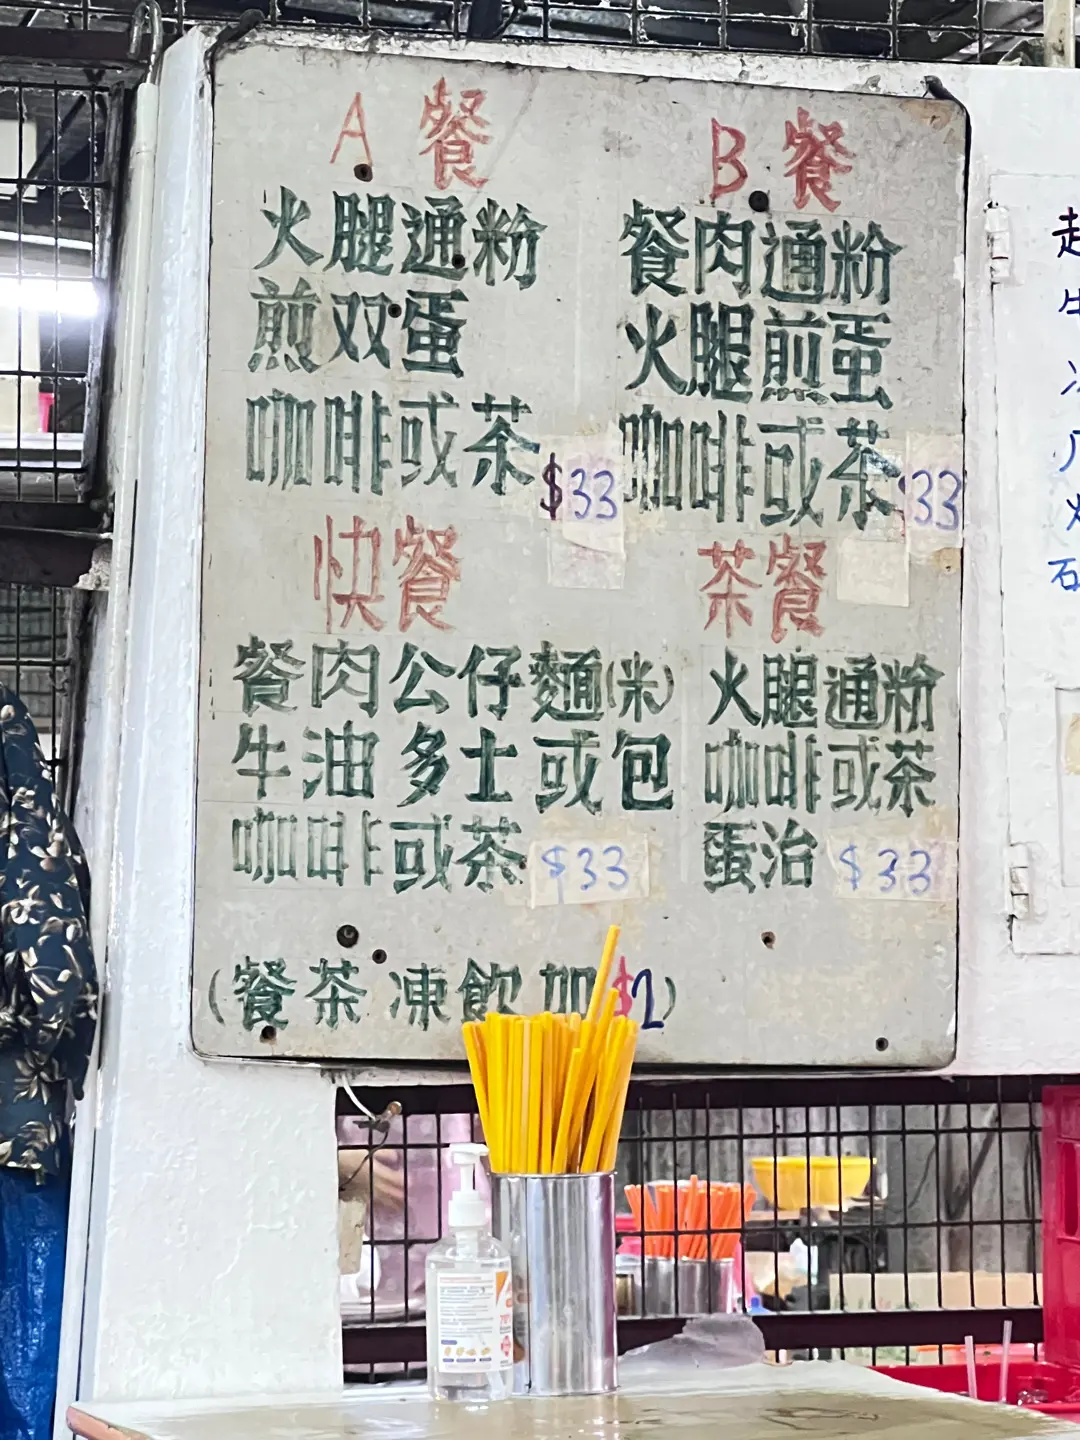 A 餐
火腿通粉
煎双蛋
咖啡或茶 $33
B 餐
餐肉通粉
火腿煎蛋
咖啡或茶 33
快餐
餐肉公仔麵(米)
牛油多士或包
咖啡或茶 $33
茶餐
火腿通粉
咖啡或茶
蛋治 $33
(餐茶凍飲加$2)